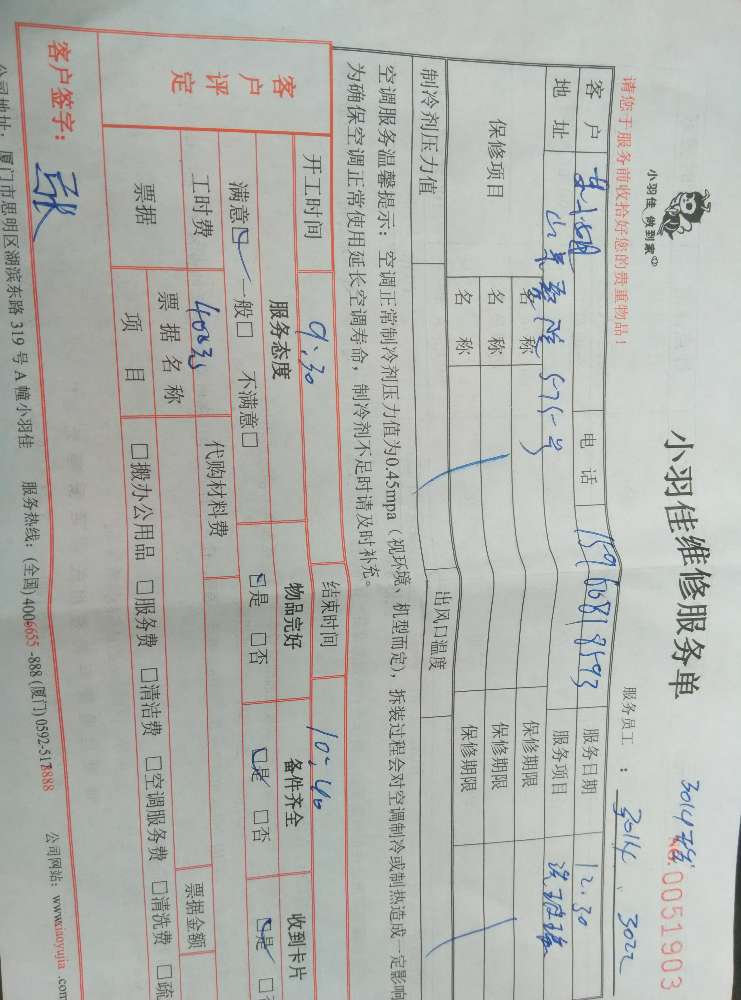 小羽佳 做到家
小羽佳维修服务单
№.0051903
请您于服务前收拾好您的贵重物品!
服务员工 : 3014、3022
客户 电话 15960818593 服务日期 12.30
地址 服务项目
保修项目 名称 保修期限
名称 保修期限
名称 保修期限
制冷剂压力值 出风口温度
空调服务温馨提示:空调正常制冷剂压力值为0.45mpa(视环境、机型而定),拆装过程会对空调制冷或制热造成一定影响
为确保空调正常使用延长空调寿命,制冷剂不足时请及时补充。
客户评定
开工时间 9:30 结束时间 10:40
服务态度 物品完好 备件齐全 收到卡片
满意☑ 一般□ 不满意□ ☑是 □否 ☑是 □否 ☑是
工时费 代购材料费
票据 票据名称 票据金额
项目 □搬办公用品 □服务费 □清洁费 □空调服务费 □清洗费 □疏
客户签字: 张
公司地址:厦门市思明区湖滨东路 319 号 A 幢小羽佳 服务热线:(全国)4006655-888(厦门)0592-5178888 公司网站:www.xiaoyujia.com